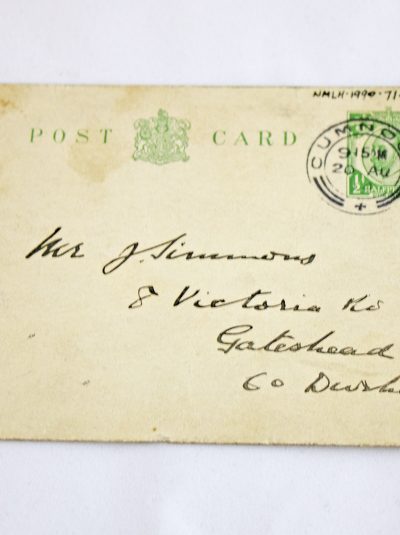 NMLH·1990·71
POST CARD
CUMNO
915
20 AU
½ HALFP
Mr J. Simmons
8 Victoria Rd
Gateshead
Co Durh